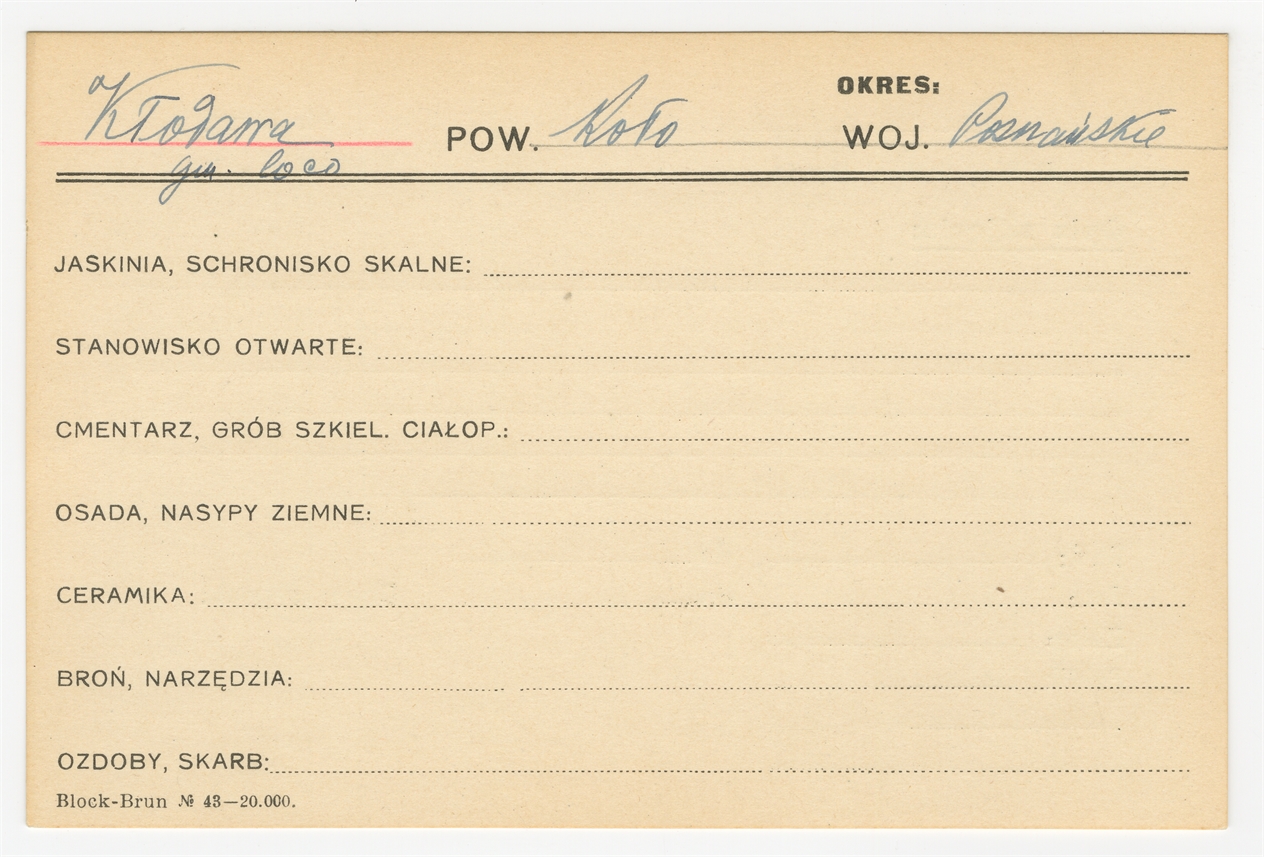 OKRES:
Kłodawa POW. Koło WOJ. Poznańskie
gm. loco
JASKINIA, SCHRONISKO SKALNE:
STANOWISKO OTWARTE:
CMENTARZ, GRÓB SZKIEL. CIAŁOP.:
OSADA, NASYPY ZIEMNE:
CERAMIKA:
BROŃ, NARZĘDZIA:
OZDOBY, SKARB:
Block-Brun № 43—20.000.